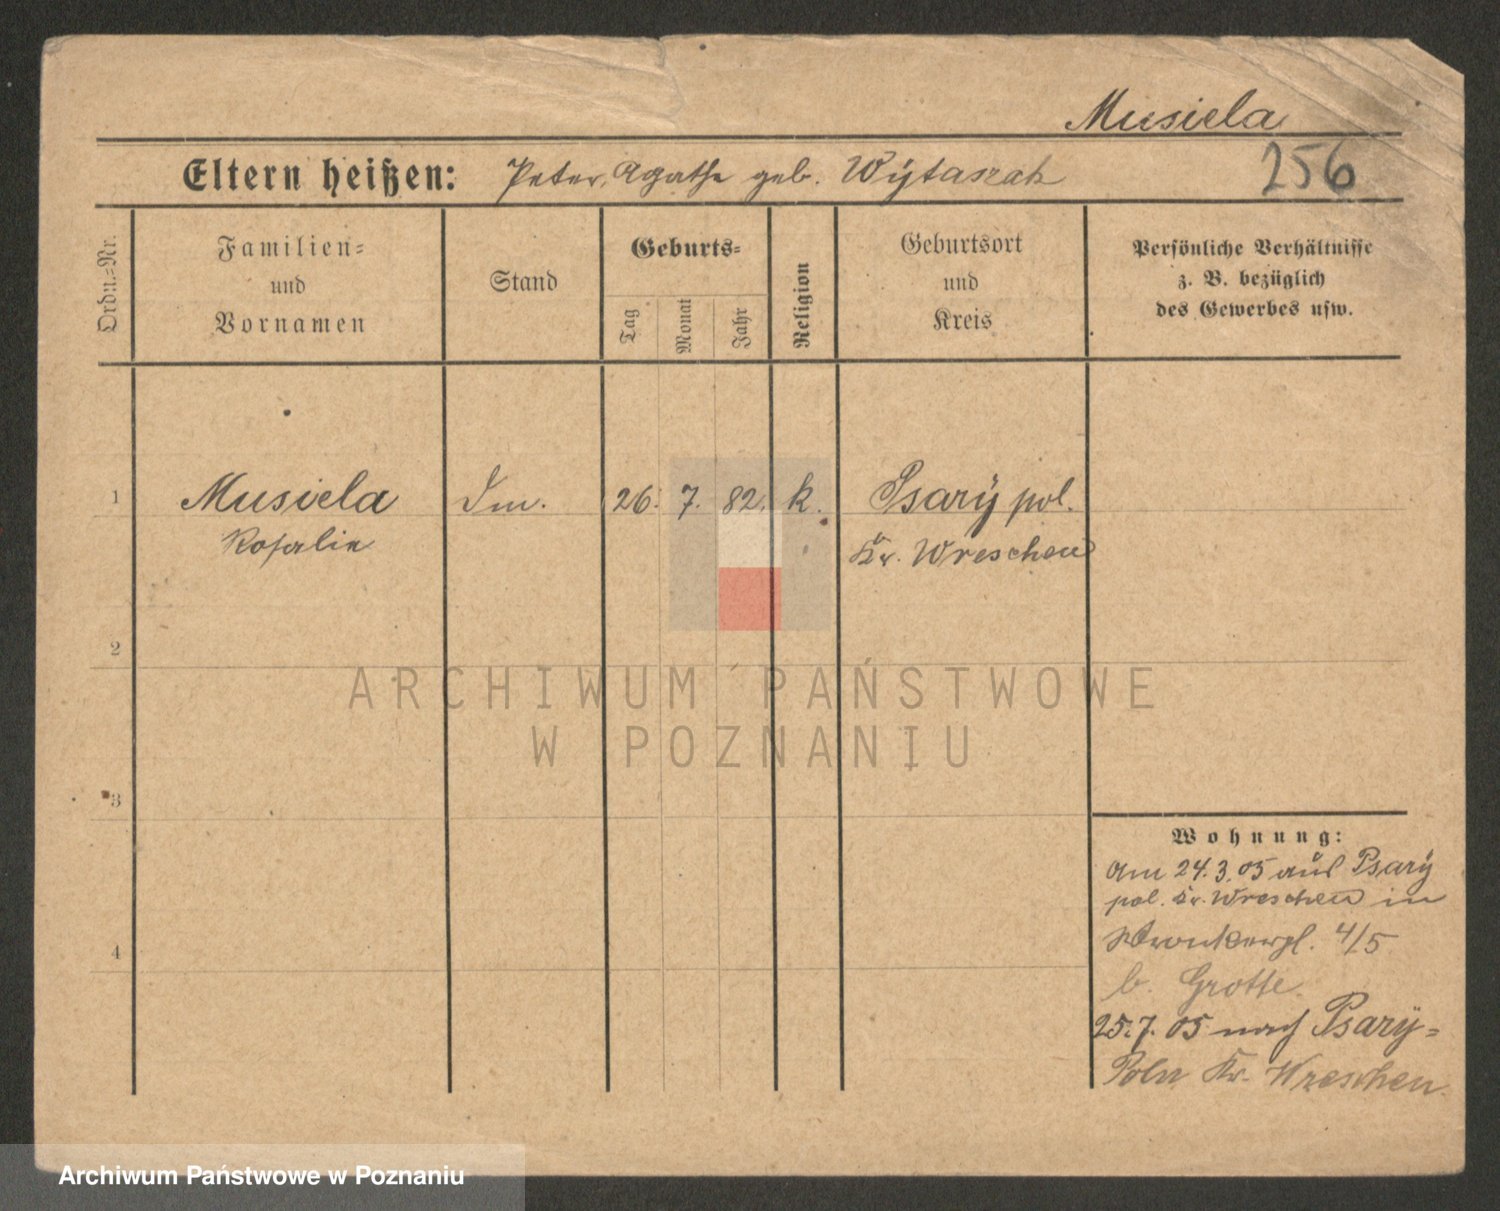 Musiela
Eltern heißen: Peter, Agathe geb. Wÿtaszak
256
Ordn.=Nr.
Familien=
und
Vornamen
Stand
Geburts=
Tag
Monat
Jahr
Religion
Geburtsort
und
Kreis
Persönliche Verhältnisse
z. B. bezüglich
des Gewerbes usw.
1 Musiela 26. 7. 82. k. Psarÿ pol.
Rosalie Kr. Wreschen
2
3
4
Wohnung:
Am 24.3.05 aus Psarÿ
pol. Kr. Wreschen in
Wronkerpl. 4/5
b. Grothe.
25.7.05 nach Psarÿ=
Poln Kr. Wreschen.
ARCHIWUM PAŃSTWOWE
W POZNANIU
Archiwum Państwowe w Poznaniu